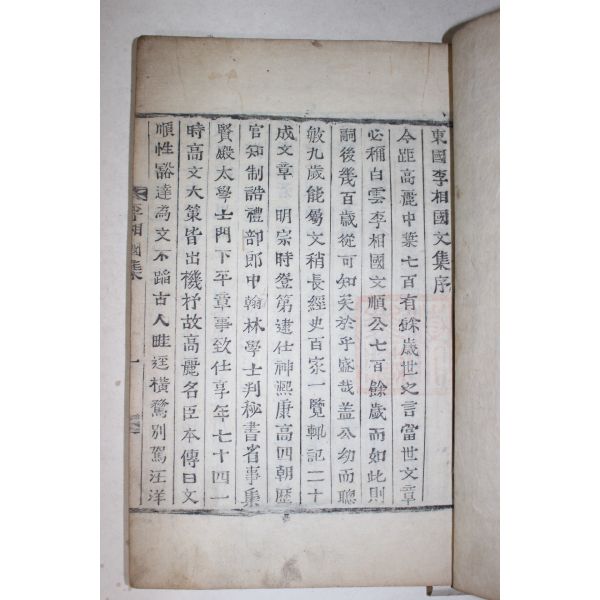 東國李相國文集序
今距高麗中葉七百有餘歲世之言當世文章
必稱白雲李相國文順公七百餘歲而如此則
嗣後幾百歲從可知矣於乎盛哉盖公幼而聰
敏九歲能屬文稍長經史百家一覽輒記二十
成文章 明宗時登第逮仕神熙康高四朝歷
官知制誥禮部郎中翰林學士判秘書省事集
賢殿太學士門下平章事致仕享年七十四一
時高文大策皆出機杼故高麗名臣本傳曰文
順性豁達為文不蹈古人畦逕橫騖別駕汪洋
李相國集 一